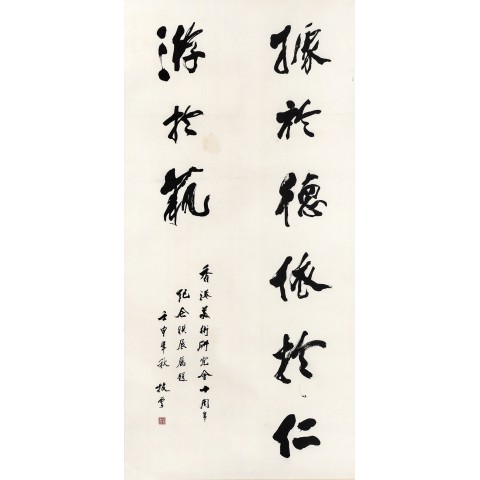 據於德依於仁
游於藝
香港美術研究会十周年
紀念联展属題
壬申年秋 枝雪